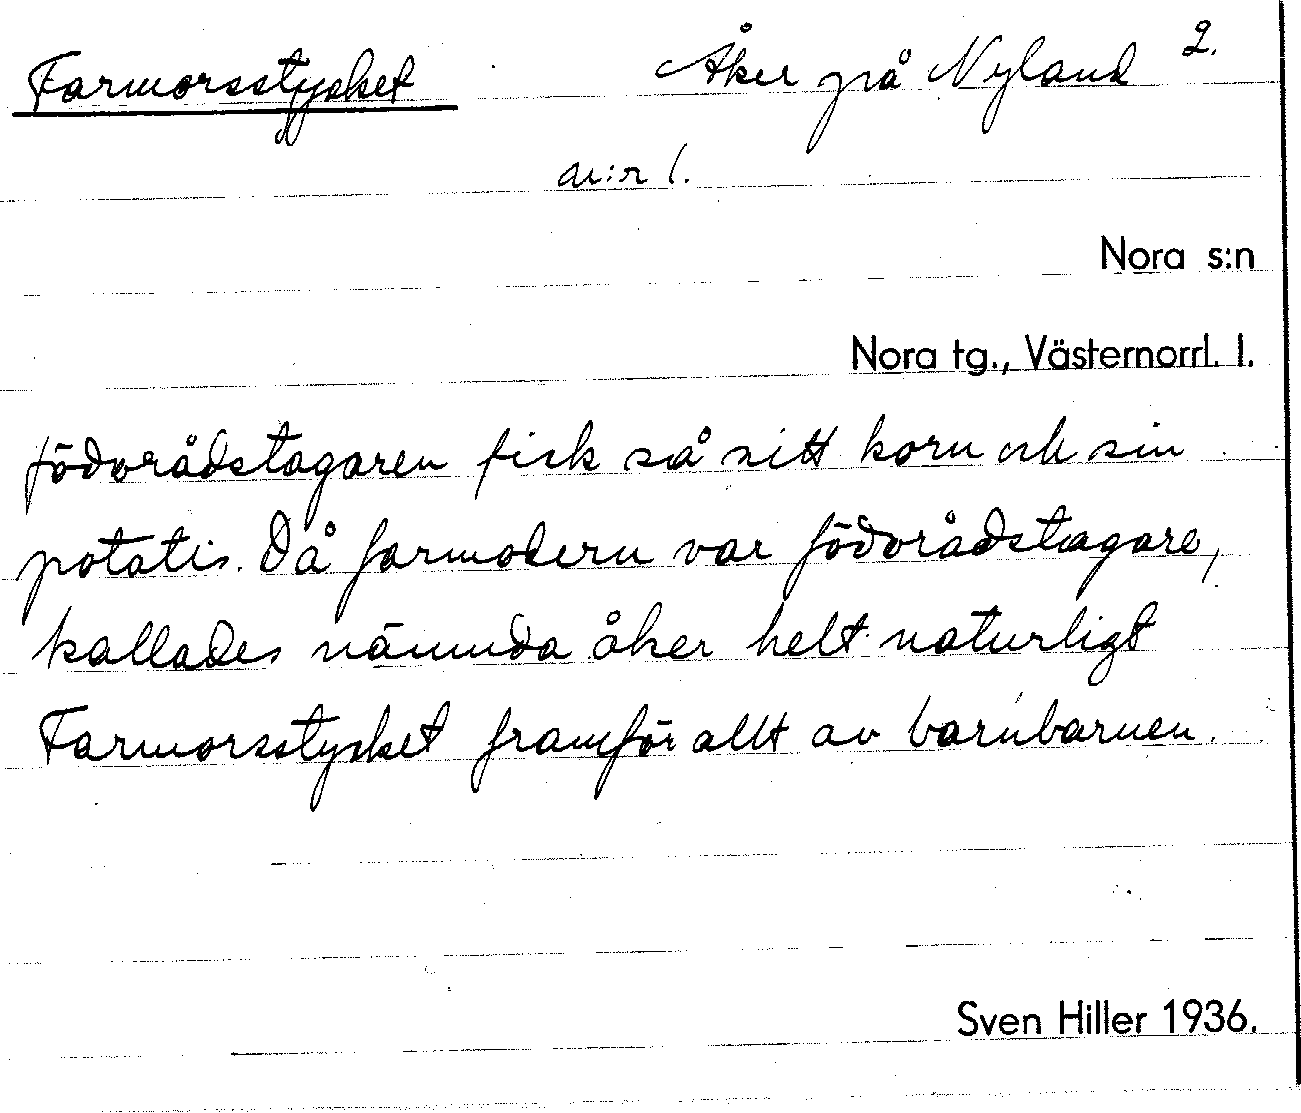 Farmorsstycket Åker på Nyland 2.
av:r 1.
Nora s:n
Nora tg., Västernorrl. l.
födorådstagaren fick så sitt korn och sin
potatis. Då farmodern var födorådstagare,
kallades nämnda åker helt naturligt
Farmorsstycket framför allt av barnbarnen.
Sven Hiller 1936.